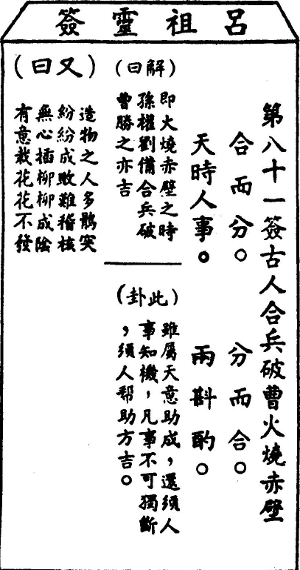 呂祖靈簽
第八十一簽古人合兵破曹火燒赤壁
合而分。 分而合。
天時人事。 兩斟酌。
(曰解)
即火燒赤壁之時
孫權劉備合兵破
曹勝之亦吉
(此卦)
雖屬天意助成,還須人
事知機,凡事不可獨斷
,須人幫助方吉。
(又曰)
造物之人多鶻突
紛紛成敗難稽核
無心插柳柳成陰
有意栽花花不發